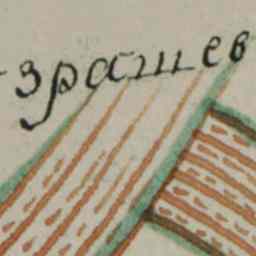 зрашев